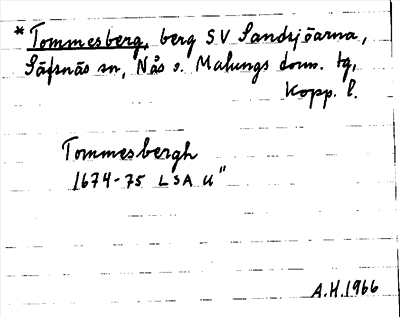 * Tommesberg, berg SV Sandsjöarna,
Säfsnäs sn, Nås o. Malungs doms. tg,
Kopp. l.
Tommesbergh
1674-75 LSA U"
A.H. 1966